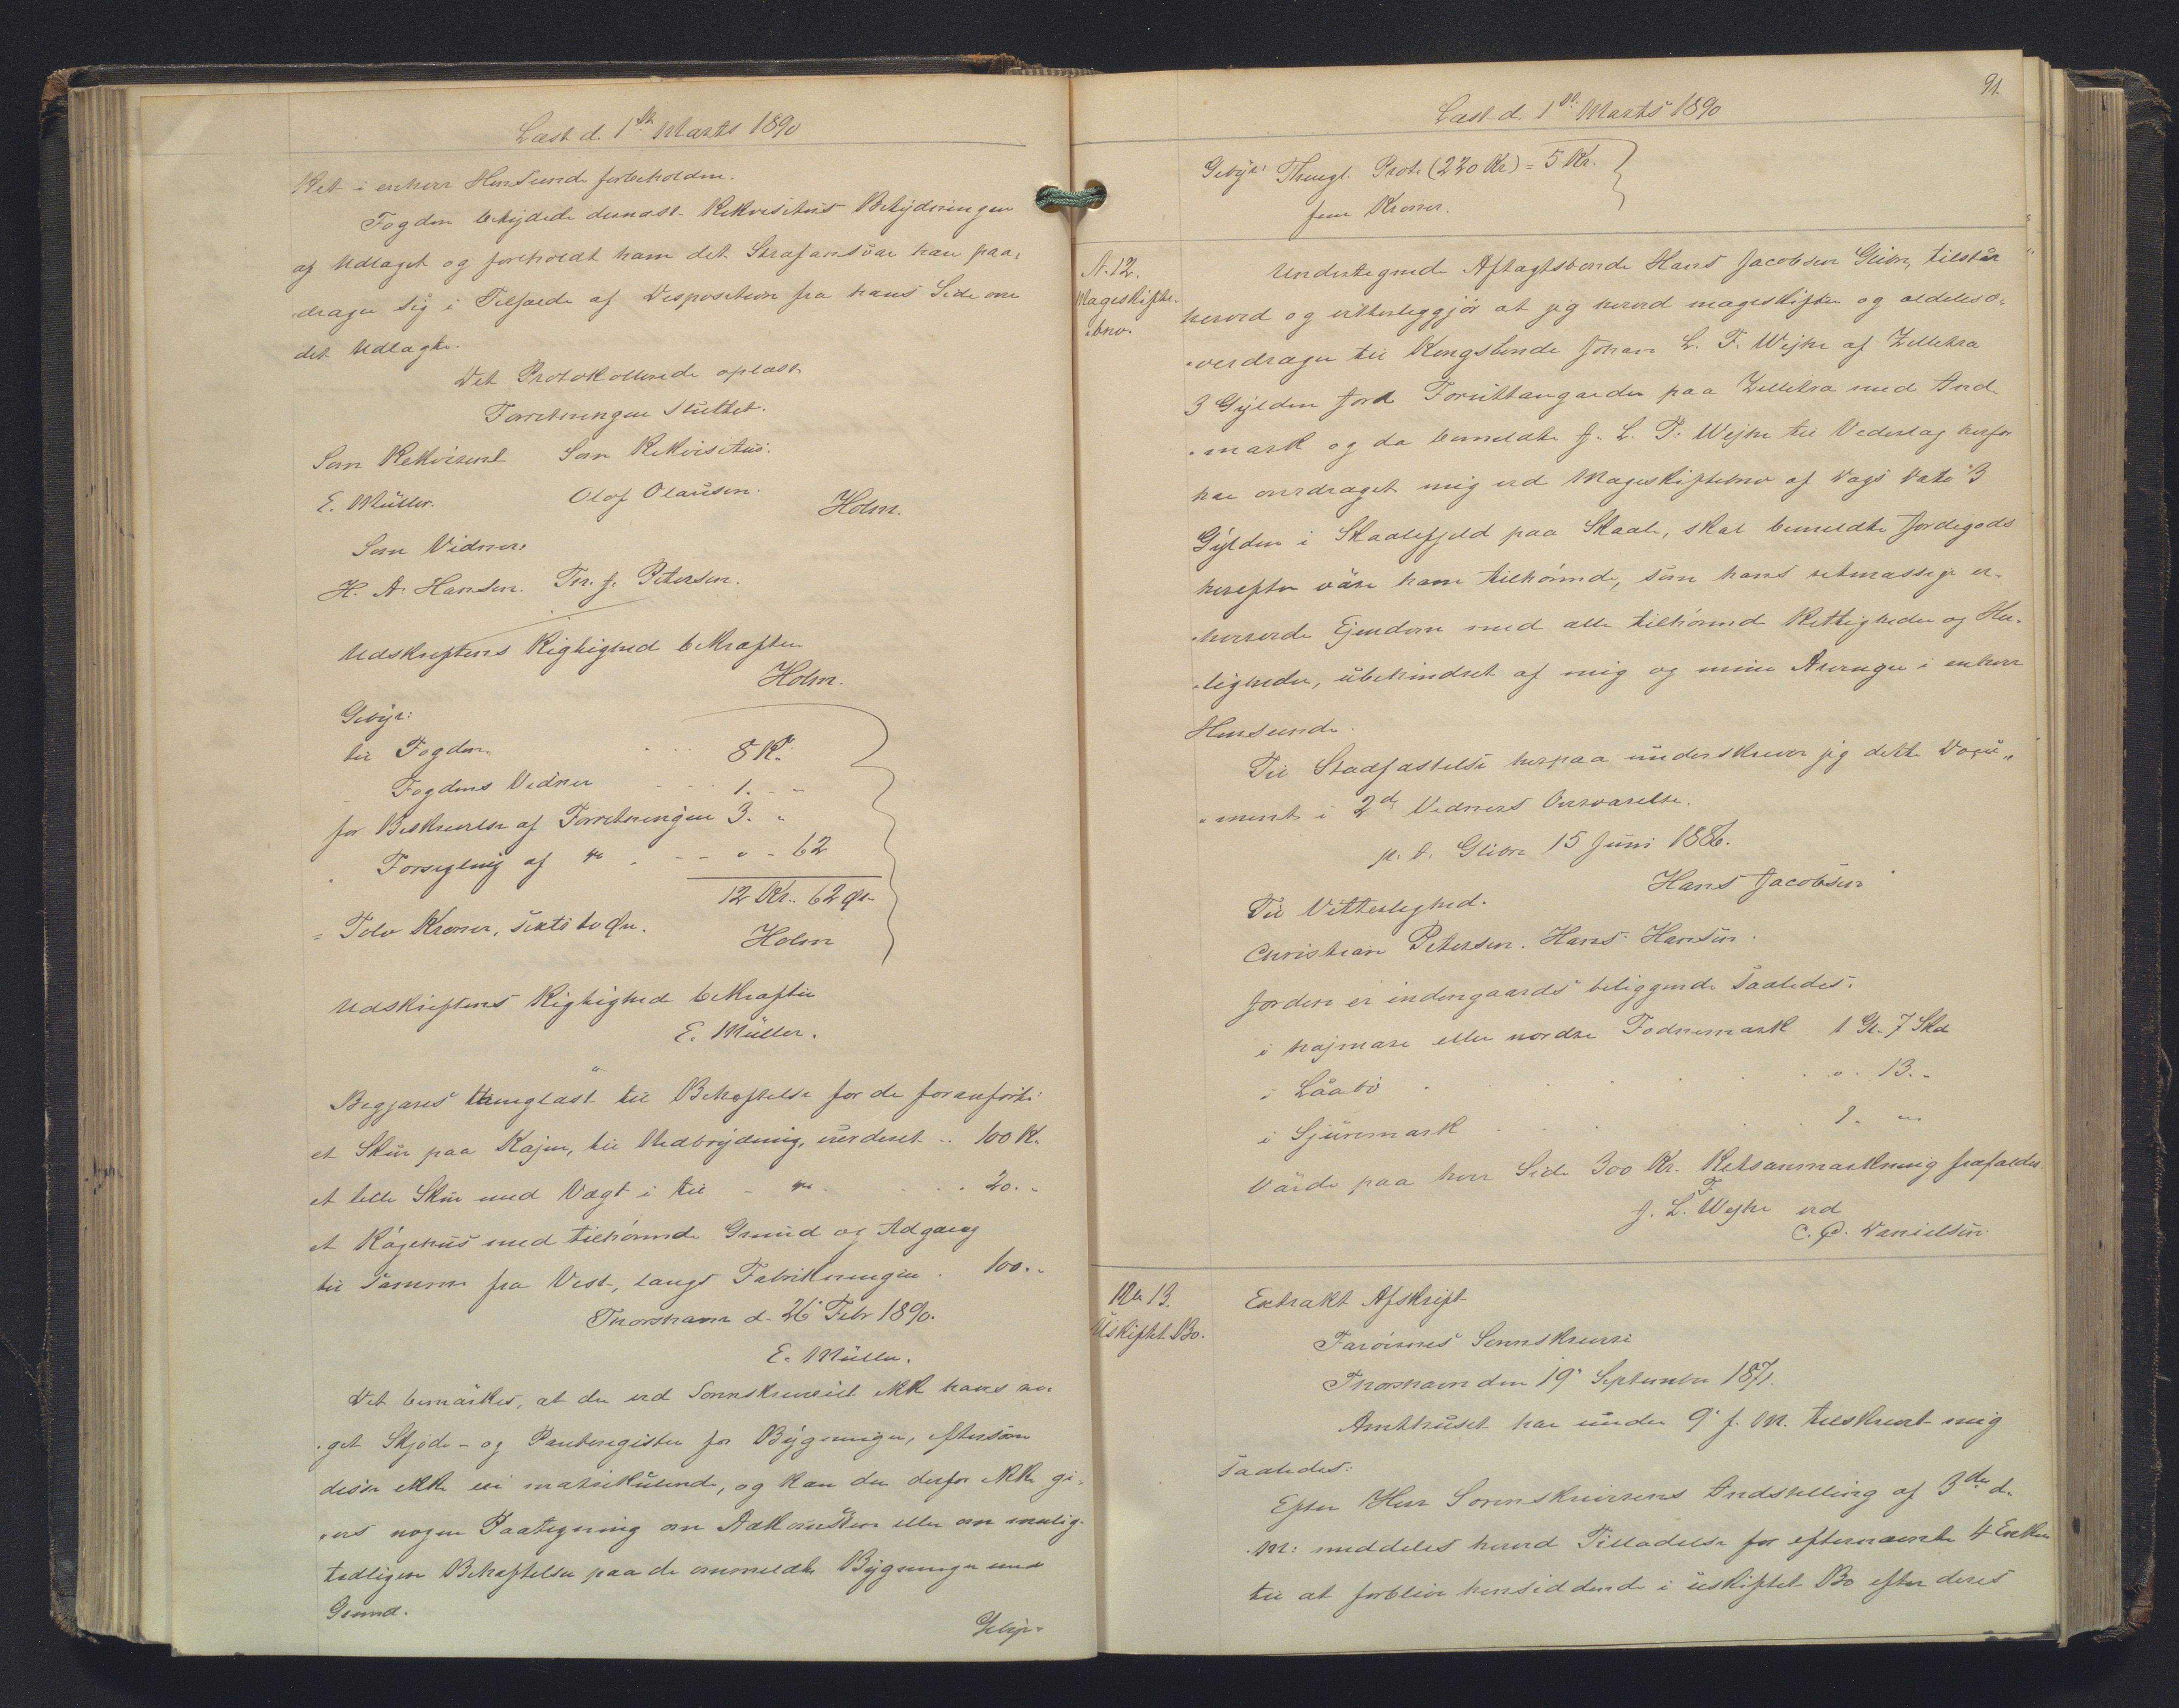 Læst d. 1ste Marts 1890
Ret i enhver Henseende forbeholden.
Fogden betydede dernæst Rekvisitus Betydningen
af Udlaget og foreholdt ham det Strafansvar han paa-
drager sig i Tilfælde af Disposition fra hans Side over
det Udlagte.
Det Protokollerede oplæst.
Forretningen sluttet.
Som Rekvirent Som Rekvisitus:
E. Müller. Olaf Olausen. Holm.
Som Vidner:
H. A. Hansen. Th. J. Petersen.
Udskriftens Rigtighed bekræfter
Holm.
Gebyr:
til Fogden 8 Kr.
- Fogdens Vidner 1. - "
for Beskrivelse af Forretningen 3. "
- Forsegling af " - " - 62
12 Kr. 62 Ør.
= Tolv Kroner, seksti to Øre.
Holm
Udskriftens Rigtighed bekræfter
E. Müller.
Begjæres thinglæst til Behæftelse for de foranførte:
et Skur paa Kajen, til Nedbrydning, vurderet .. 100 Kr.
et lille Skur med Vægt i til - " . . . 20. -
et Kogehus med tilhørende Grund og Adgang
til samme fra Vest, langs Fabrikbygningen . 100. -
Thorshavn d. 26' Febr 1890.
E. Müller.
Det bemærkes, at der ved Sorenskriveriet ikke haves no-
-get Skjøde- og Panteregister for Bygninger, eftersom
disse ikke ere matrikulerede, og kan der derfor ikke gi-
-ves nogen Paategning om Adkomsten eller om mulig
tidligere Behæftelser paa de ommeldte Bygninger med
Grund.
Gebyr
91.
Læst d. 1ste Marts 1890
Gebyr: Thingl. Prot. (220 Kr) = 5 Kr.
fem Kroner.
N. 12.
Mageskifte-
brev.
Undertegnede Aftagtsbonde Hans Jacobsen Glibre, tilstår
herved og vitterliggjør at jeg herved mageskifter og aldeles o-
-verdrager til Kongsbonde Johan L. F. Wejhe af Zelletræ
3 Gylden Jord Foruttangarder paa Zelletræ med Ind-
-mark og da bemeldte J. L. F. Wejhe til Vederlag herfor
har overdraget mig ved Mageskiftebrev af Dags Dato 3
Gylden i Skaalefjeld paa Skaale, skal bemeldte Jordegods
herefter være ham tilhørende, som hans retmæssige er-
-hvervede Ejendom med alle tilhørende Rettigheder og Her-
-ligheder, ubehindret af mig og mine Arvinger i enhver
Henseende.
Til Stadfæstelse herpaa underskriver jeg dette Docu-
-ment i 2de Vidners Overværelse.
p. t. Glibre 15 Juni 1886.
Hans Jacobsen
Til Vitterlighed.
Christian Petersen. Hans Hansen.
Jorden er indengaards beliggende saaledes:
i højmare eller nordre Fodnemark 1 Gl. 7 Skd
i Låabö " 13. -
i Sjúremark 1. "
Værdi paa hver Side 300 Kr. Retsanmærkning frafaldes.
J. L. F. Wejhe ved
C. P. Danielsen
No 13.
Uskiftet Bo.
Extrakt Afskrift
Færøernes Sorenskriveri
Thorshavn den 19' September 1871.
Amthuset har under 9' f. M. tilskrevet mig
saaledes:
Efter Herr Sorenskriverens Indstilling af 3die d.
M: meddeles herved Tilladelse for efternævnte 4 Enker
til at forblive hensiddende i uskiftet Bo efter deres